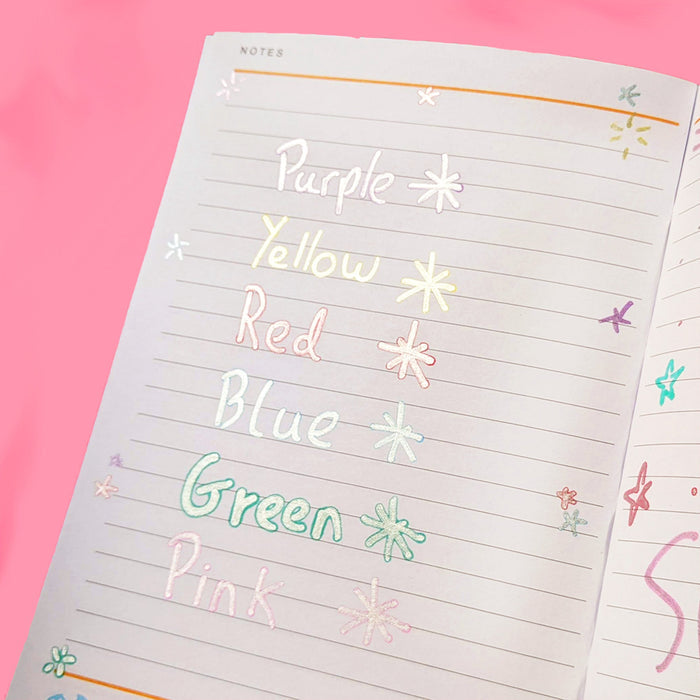 NOTES
Purple
Yellow
Red
Blue
Green
Pink